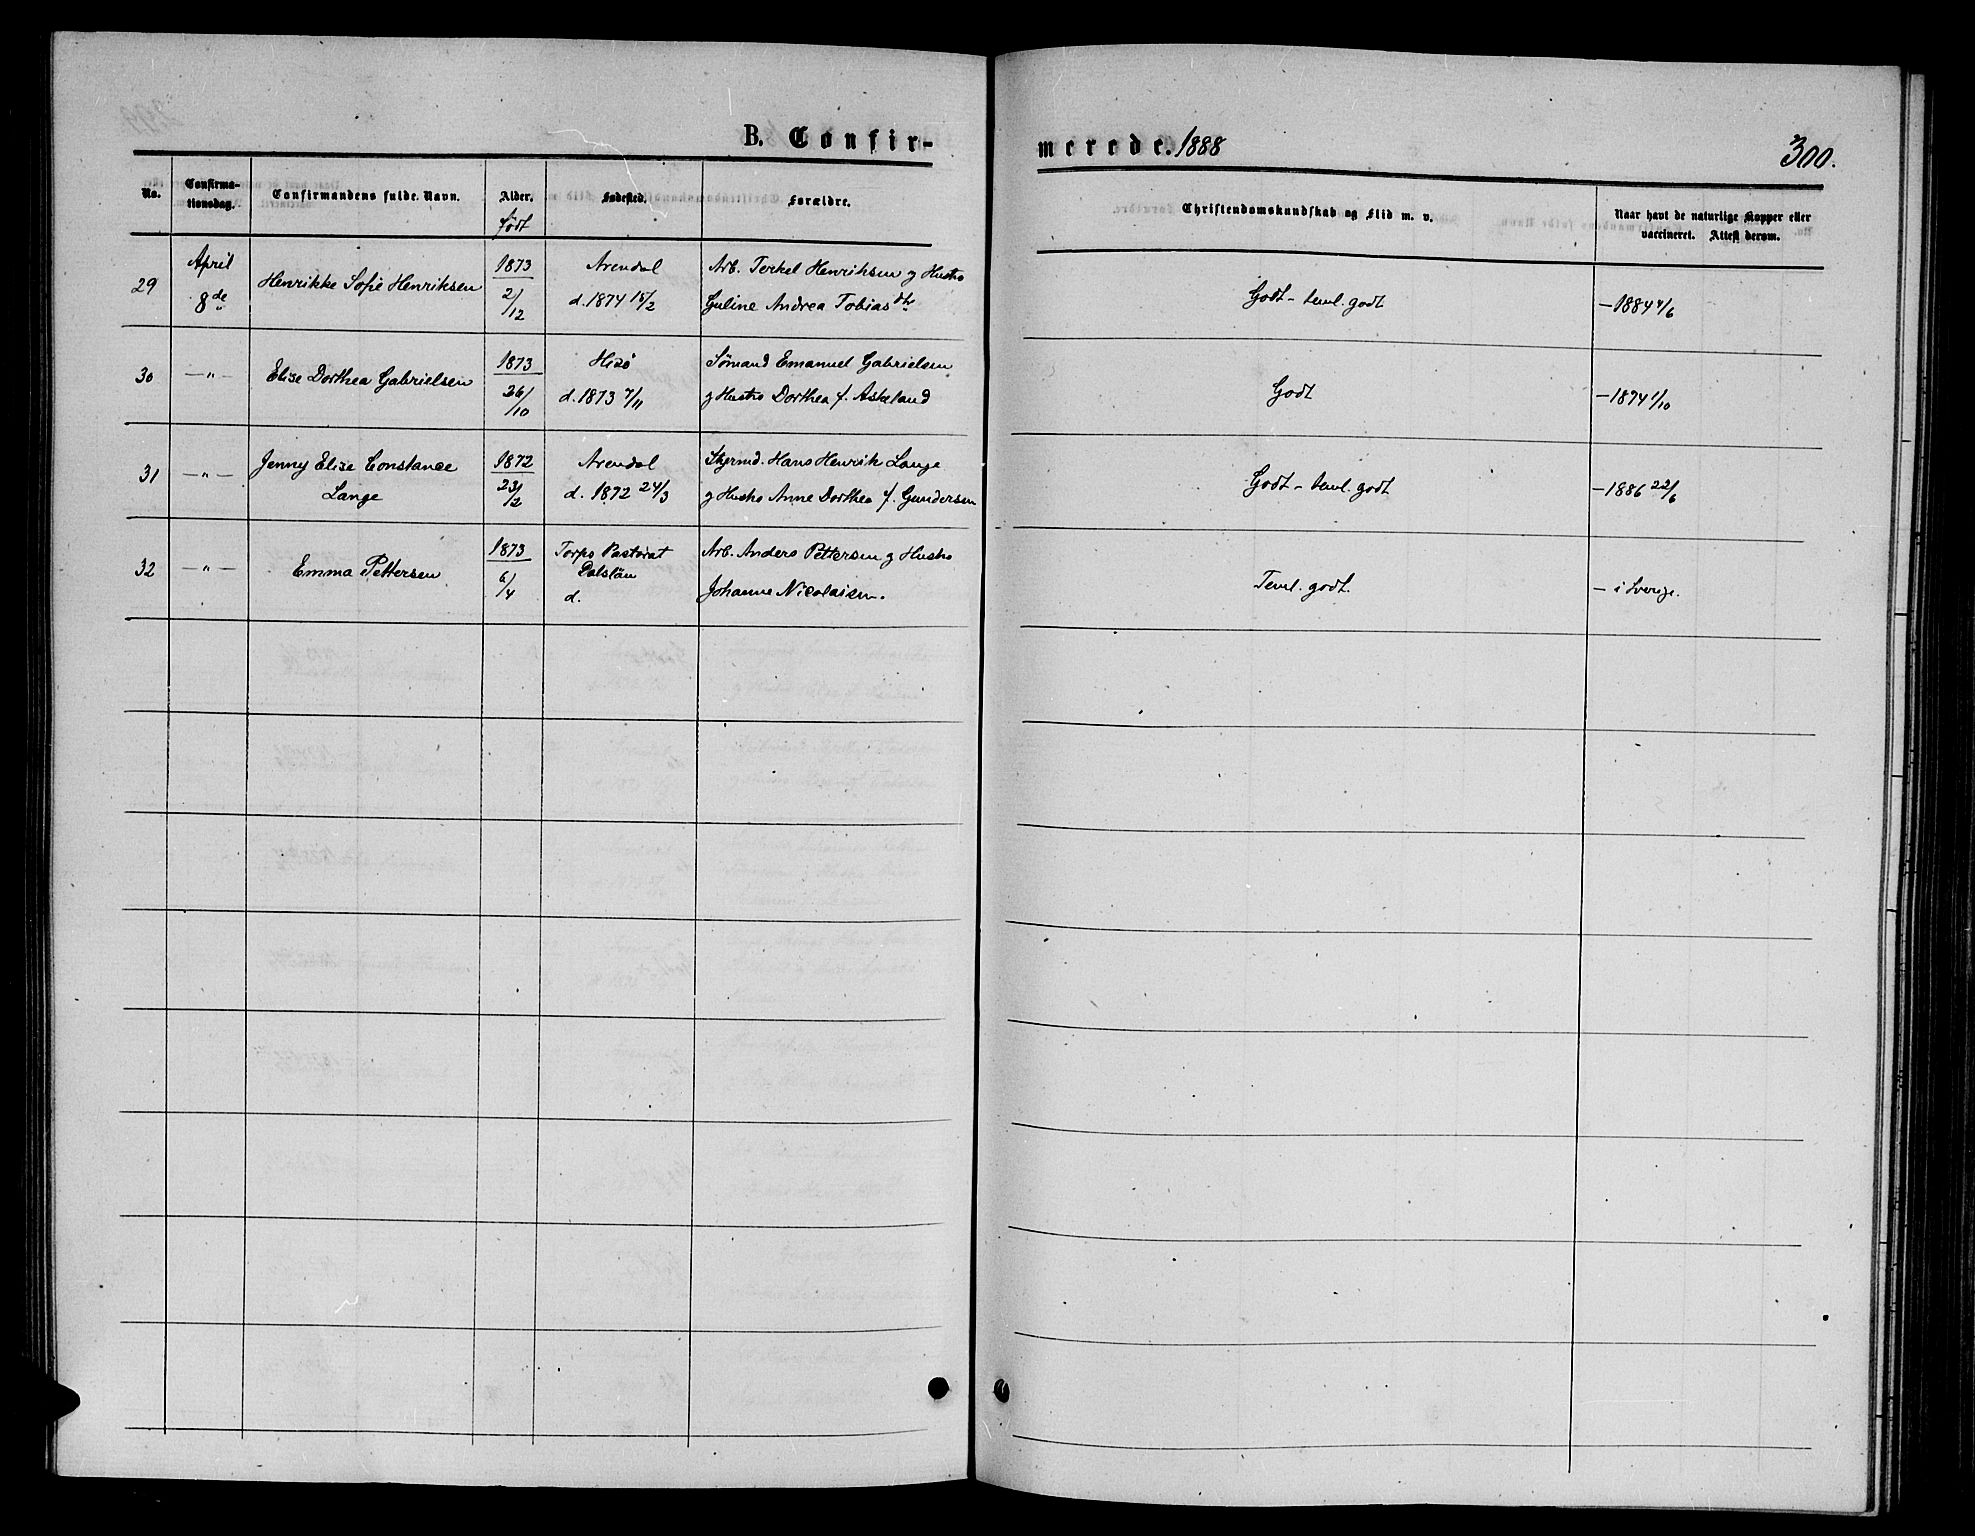 B. Confir-
merede. 1888
300.
No.
Confirma-
tionsdag.
Confirmandens fulde Navn.
Alder.
født
Fødested.
Forældre.
Christendomskundskab og Flid m. v.
Naar havt de naturlige Kopper eller
vaccineret. Attest derom.
29
April
8de
Henrikke Sofie Henriksen
1873
2/12
Arendal
d. 1874 15/2
Arb. Terkel Henriksen g Hustro
Guline Andrea Tobiasdtr
Godt - teml. godt
- 1884 4/6
30
— " —
Elise Dorthea Gabrielsen
1873
26/10
Hisø
d. 1873 7/11
Sømand Emanuel Gabrielsen
g Hustro Dorthea f. Askeland
Godt
- 1874 1/10
31
— " —
Jenny Elise Constance
Lange
1872
23/2
Arendal
d. 1872 24/3
Styrmd. Hans Henrik Lange
g Hustro Anne Dorthea f. Gundersen
Godt - teml. godt
- 1886 22/6
32
— " —
Emma Pettersen
1873
6/4
Torps Pastorat
Dalslän
d.
Arb. Anders Pettersen g Hustro
Johanne Nicolaisen.
Teml. godt.
- i Sverige.